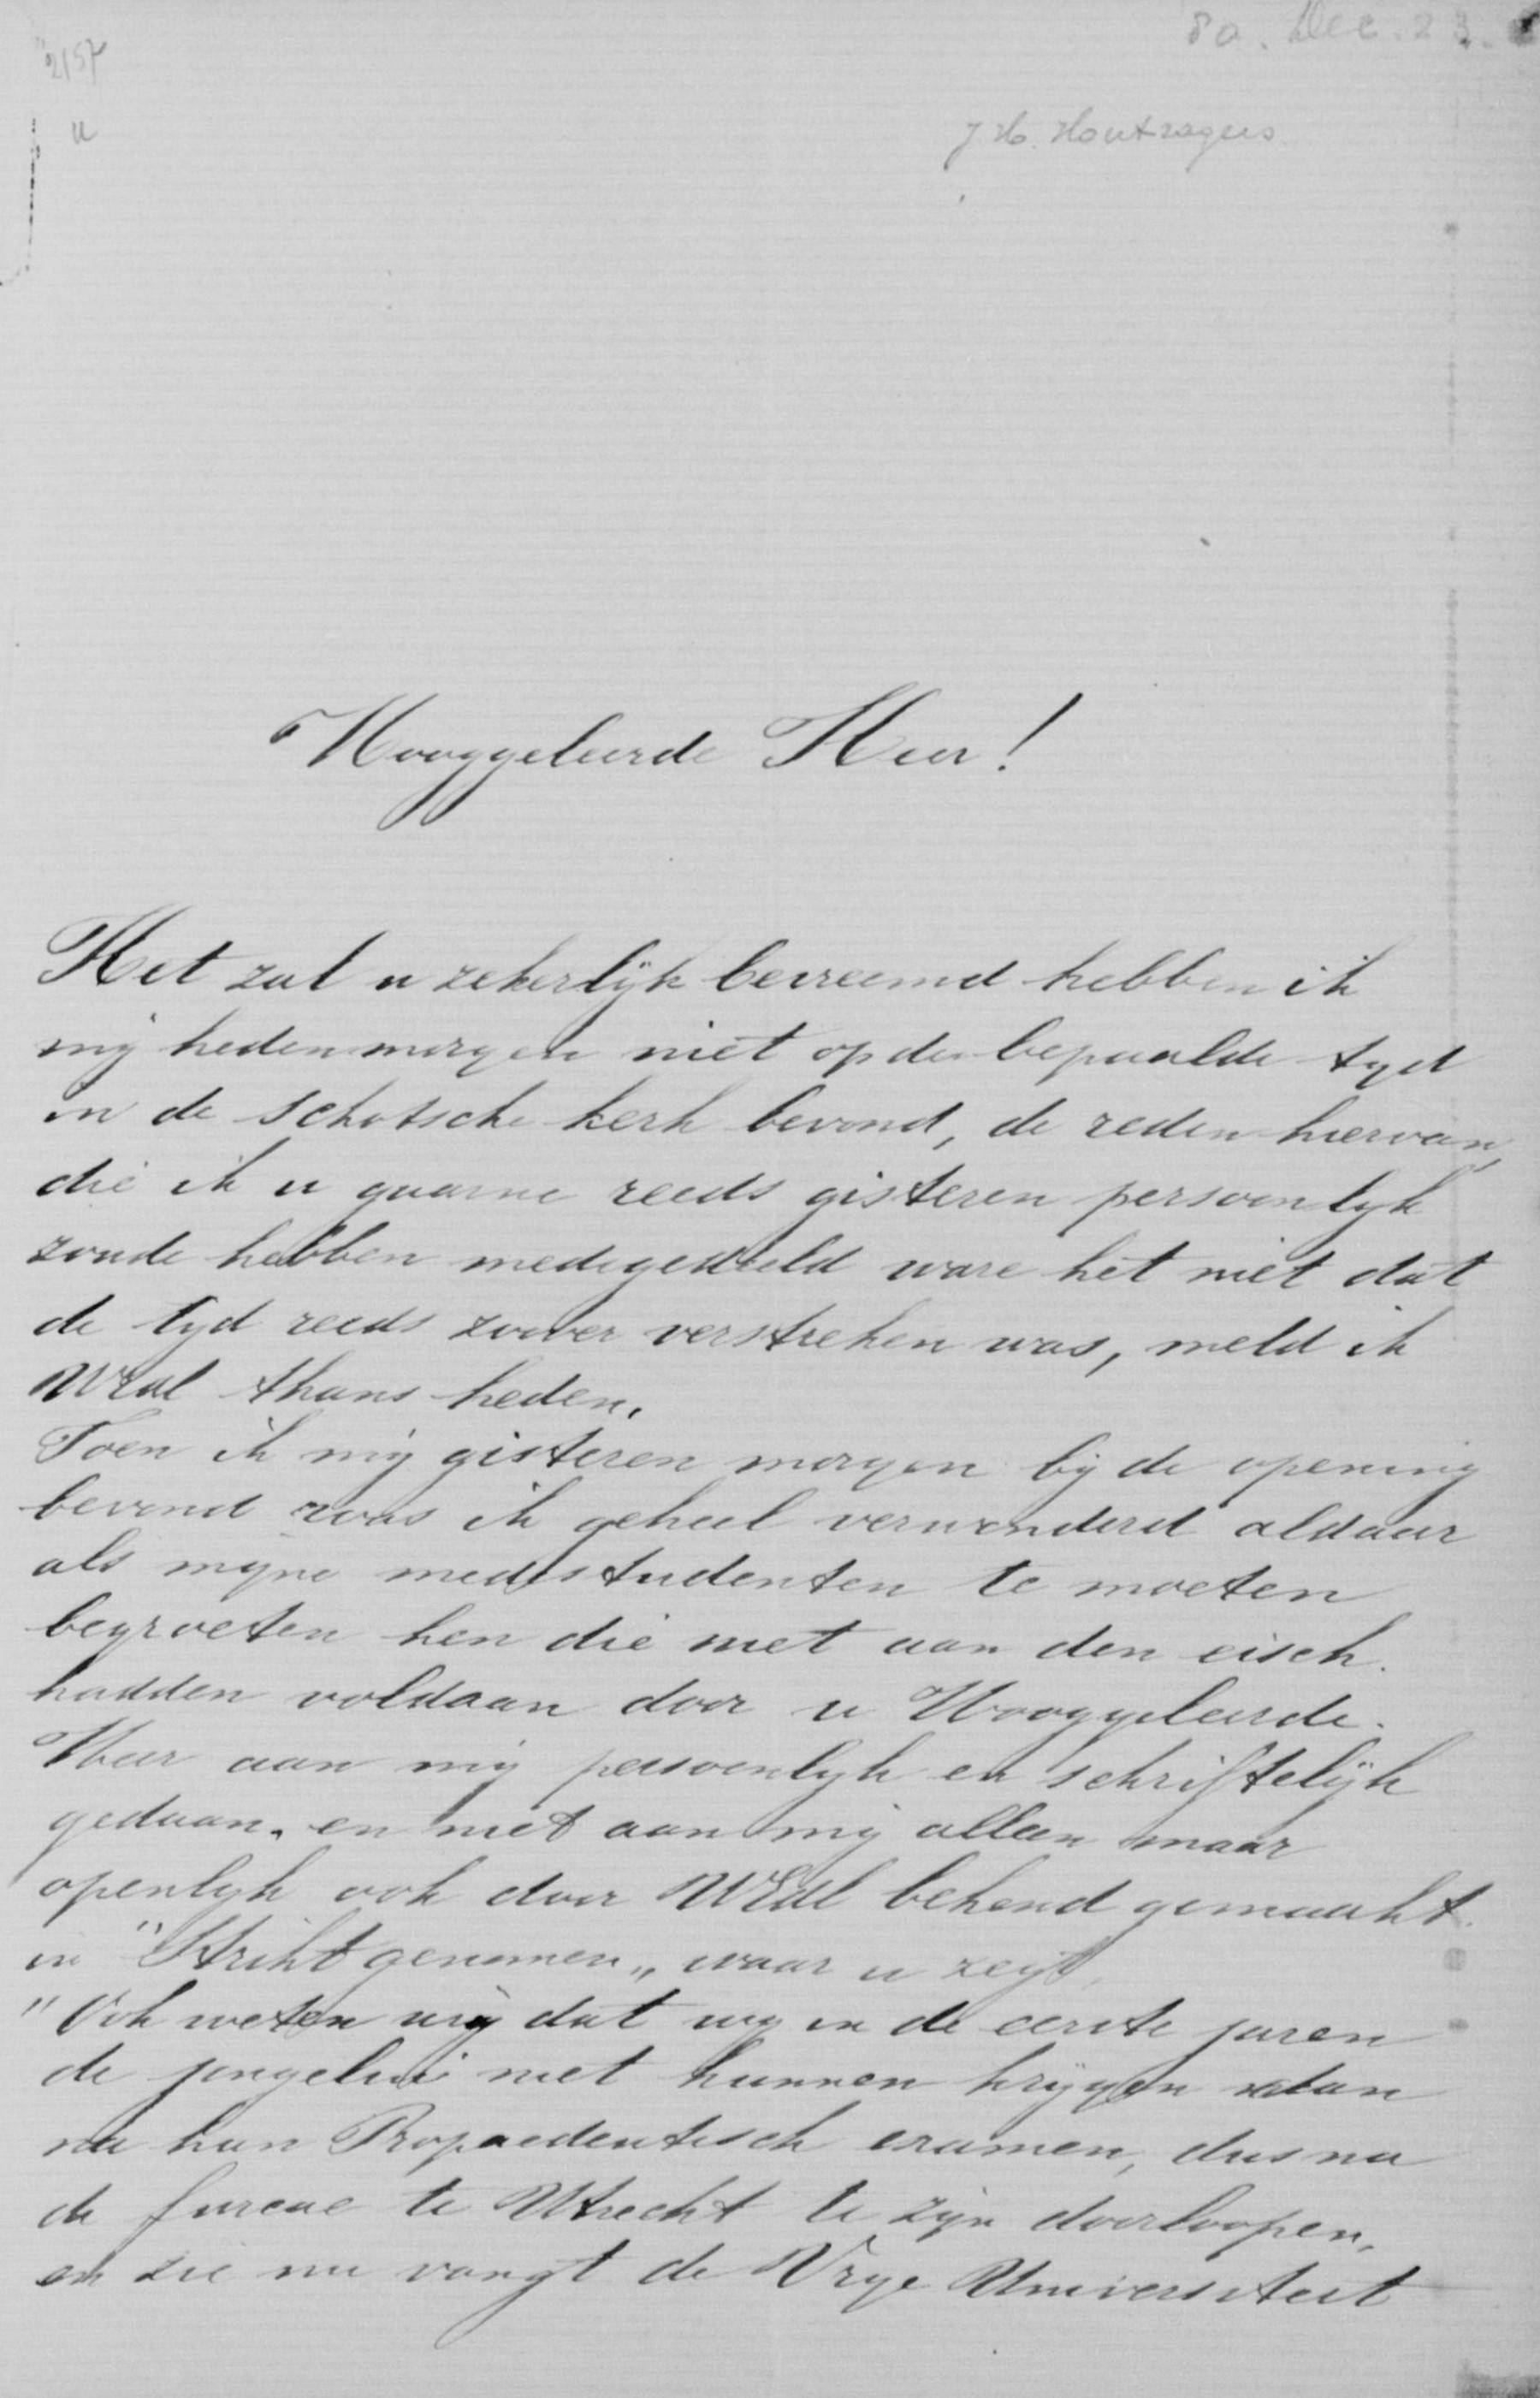 80. Dec. 23.
2157
u
J. H. Houtzagers
Hooggeleerde Heer!
Het zal u zekerlijk bevreemd hebben ik
mij hedenmorgen niet op den bepaalde tyd
in de schotsche kerk bevond, de reden hiervan,
die ik u gaarne reeds gisteren persoonlyk
zoude hebben medegedeeld ware het niet dat
de tyd reeds zoover verstreken was, meld ik
WEdl thans heden.
Toen ik mij gisteren morgen bij de opening
bevond was ik geheel verwonderd aldaar
als myne medestudenten te moeten
begroeten hen die niet aan den eisch
hadden voldaan door u Hooggeleerde
Heer aan mij persoonlyk en schriftelijk
gedaan. en niet aan mij alleen maar
openlyk ook door WEdl bekend gemaakt
in "Strikt genomen„ waar u zegt,
"Ook weten wij dat wy in de eerste jaren
de jongelui niet kunnen krygen dan
na hun Propaedeutisch examen, dus na
de furcae te Utrecht te zijn doorloopen,
en zie nu vangt de Vrye Universiteit